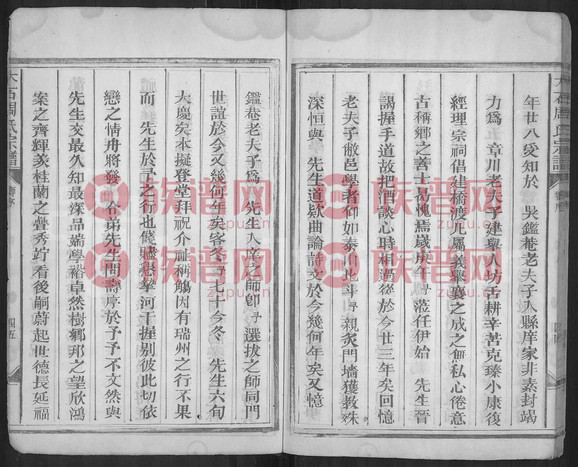 年廿八受知於 吳鑑菴老夫子入縣庠家非素封竭
力為 章川老夫子建舉人坊舌耕辛苦克臻小康後
經理宗祠倡建橋渡凡屬義舉襄之成之俱私心倦意
古稱鄉之善士曷愧焉歲庚午 蒞任伊始 先生晉
謁握手道故把酒談心時相過從於今廿三年矣回憶
老夫子敝邑學者仰如泰山北斗 親炙門墻獲教殊
深恒與 先生道欵曲論詩文於今幾何年矣又憶
鑑菴老夫子為 先生入泮之師卽 選拔之師同門
世誼於今又幾何年矣客冬 七十今冬 先生六旬
大慶矣本擬登堂拜祝介 稱觴因有瑞州之行不果
而 先生於予之行也餞驢 河干握別彼此切依
戀之情舟將發 令弟先生問 序於予予不文然與
先生交最久知最深品端學裕卓然樹鄉邦之望欣鴻
案之齊輝羨桂蘭之疊秀竚看後嗣蔚起世德長延福
大石周氏宗譜
四五
大石周氏宗譜
族谱网
zupu.cn
族谱网
zupu.cn
族谱网
zupu.cn
族谱网
zupu.cn